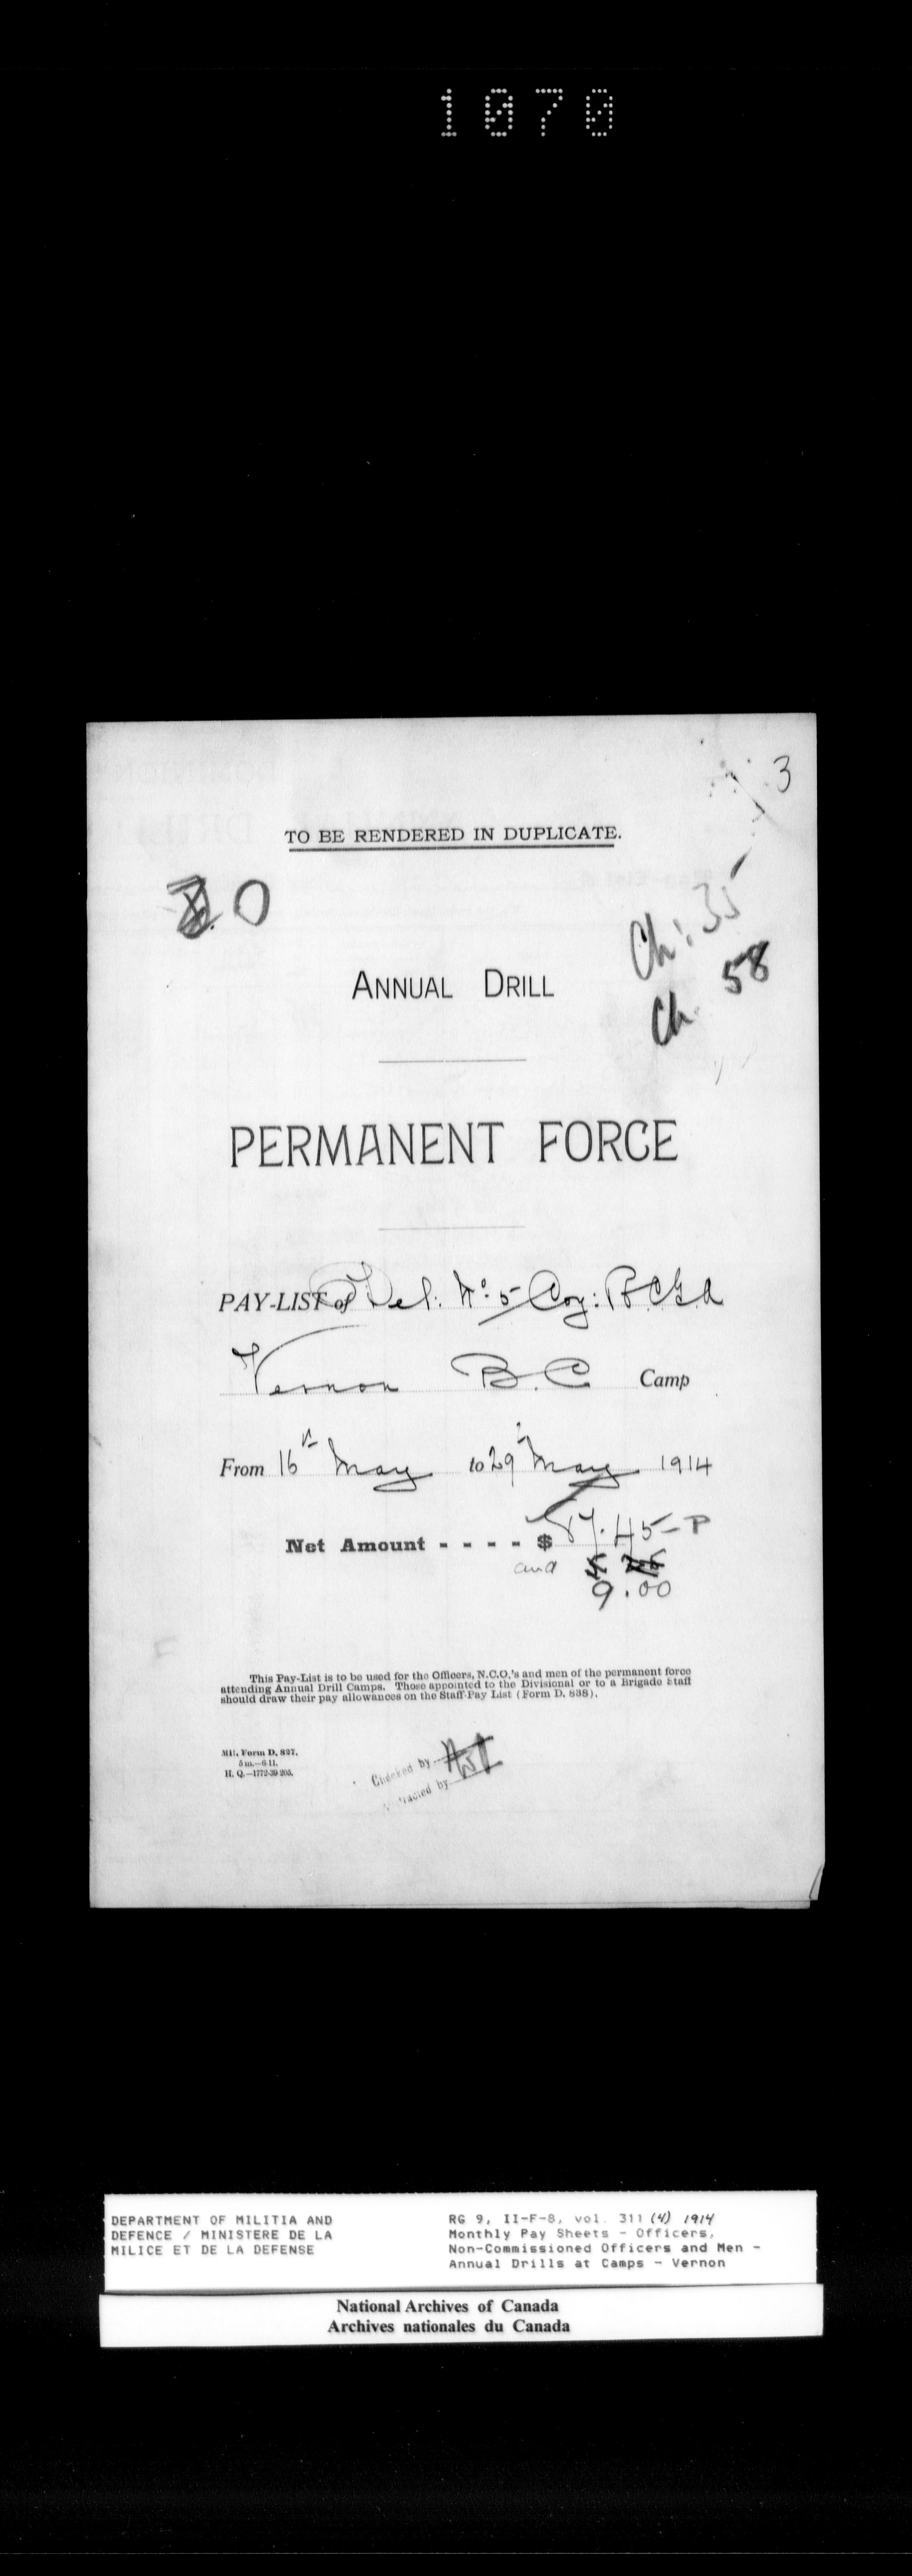 1070
3
TO BE RENDERED IN DUPLICATE.
0
Ch: 35
Ch. 58
ANNUAL DRILL
PERMANENT FORCE
PAY-LIST of Det. No 5 Coy: RCGA
Vernon B.C Camp
From 16th May to 29th May 1914
Net Amount - - - - $ 87.45 - P
and
9.00
This Pay-List is to be used for the Officers, N.C.O.'s and men of the permanent force
attending Annual Drill Camps. Those appointed to the Divisional or to a Brigade Staff
should draw their pay allowances on the Staff Pay List (Form D. 838).
Mil. Form D. 827.
5 m.—6-11.
H. Q.—1772-39-205.
Checked by
by
DEPARTMENT OF MILITIA AND
DEFENCE / MINISTERE DE LA
MILICE ET DE LA DEFENSE
RG 9, II-F-8, vol. 311 (4) 1914
Monthly Pay Sheets - Officers,
Non-Commissioned Officers and Men -
Annual Drills at Camps - Vernon
National Archives of Canada
Archives nationales du Canada